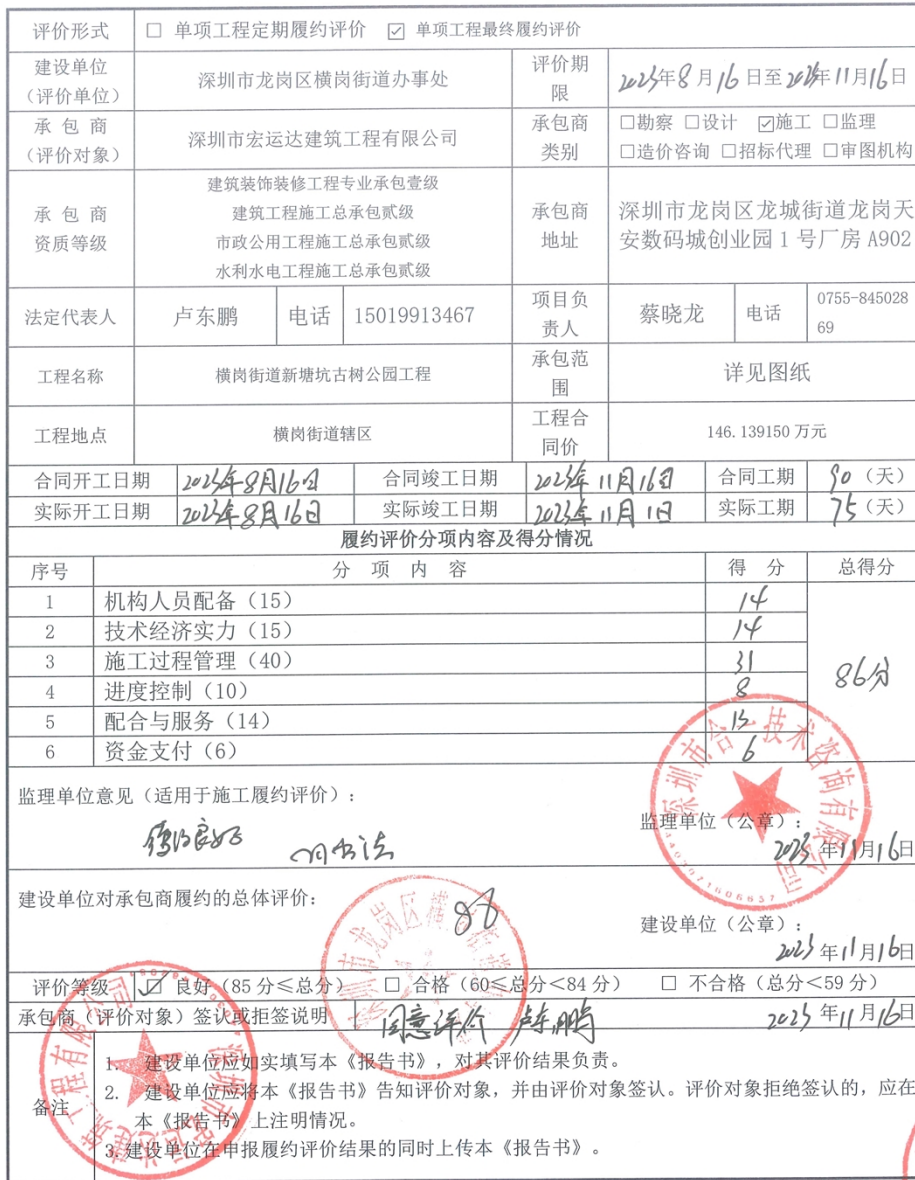 评价形式 □ 单项工程定期履约评价 ☑ 单项工程最终履约评价
建设单位（评价单位） 深圳市龙岗区横岗街道办事处 评价期限 2023年8月16日至2023年11月16日
承包商（评价对象） 深圳市宏运达建筑工程有限公司 承包商类别 □勘察 □设计 ☑施工 □监理
□造价咨询 □招标代理 □审图机构
承包商资质等级 建筑装饰装修工程专业承包壹级
建筑工程施工总承包贰级
市政公用工程施工总承包贰级
水利水电工程施工总承包贰级
承包商地址 深圳市龙岗区龙城街道龙岗天
安数码城创业园1号厂房A902
法定代表人 卢东鹏 电话 15019913467 项目负责人 蔡晓龙 电话 0755-84502869
工程名称 横岗街道新塘坑古树公园工程 承包范围 详见图纸
工程地点 横岗街道辖区 工程合同价 146.139150万元
合同开工日期 2023年8月16日 合同竣工日期 2023年11月16日 合同工期 90（天）
实际开工日期 2023年8月16日 实际竣工日期 2023年11月1日 实际工期 75（天）
履约评价分项内容及得分情况
序号 分项内容 得分 总得分
1 机构人员配备（15） 14
2 技术经济实力（15） 14
3 施工过程管理（40） 31
4 进度控制（10） 8
86分
5 配合与服务（14） 13
6 资金支付（6） 6
监理单位意见（适用于施工履约评价）：
监理单位（公章）：
深圳市合一技术咨询有限公司
2023年11月16日
建设单位对承包商履约的总体评价：
86
建设单位（公章）：
2023年11月16日
评价等级 ☑ 良好（85分≤总分） □ 合格（60≤总分<84分） □ 不合格（总分<59分）
承包商（评价对象）签认或拒签说明 同意评价 卢东鹏 2023年11月16日
深圳市宏运达建筑工程有限公司
备注
1. 建设单位应如实填写本《报告书》，对其评价结果负责。
2. 建设单位应将本《报告书》告知评价对象，并由评价对象签认。评价对象拒绝签认的，应在
本《报告书》上注明情况。
3.建设单位在申报履约评价结果的同时上传本《报告书》。